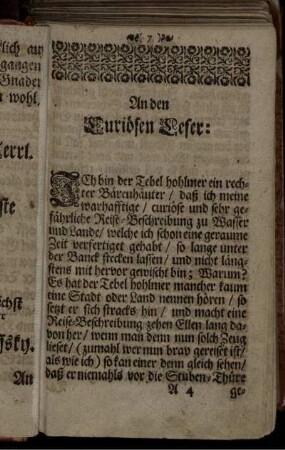 lich au
gangen
Gnaden
wohl,
Herrl.
ste
ächst
er
ffsky.
An
7.
An den
Curiösen Leser:
ICh bin der Tebel hohlmer ein rech-
ter Bärenhäuter / daß ich meine
warhafftige / curiöse und sehr ge-
fährliche Reise-Beschreibung zu Wasser
und Lande / welche ich schon eine geraume
Zeit verfertiget gehabt / so lange unter
der Banck stecken lassen / und nicht läng-
stens mit hervor gewischt bin; Warum?
Es hat der Tebel hohlmer mancher kaum
eine Stadt oder Land nennen hören / so
setzt er sich stracks hin / und macht eine
Reise-Beschreibung zehen Ellen lang da-
von her / wenn man denn nun solch Zeug
lieset / (zumahl wer nun brav gereiset ist /
als wie ich) so kan einer denn gleich sehen /
daß er niemahls vor die Stuben-Thüre
A 4 ge-